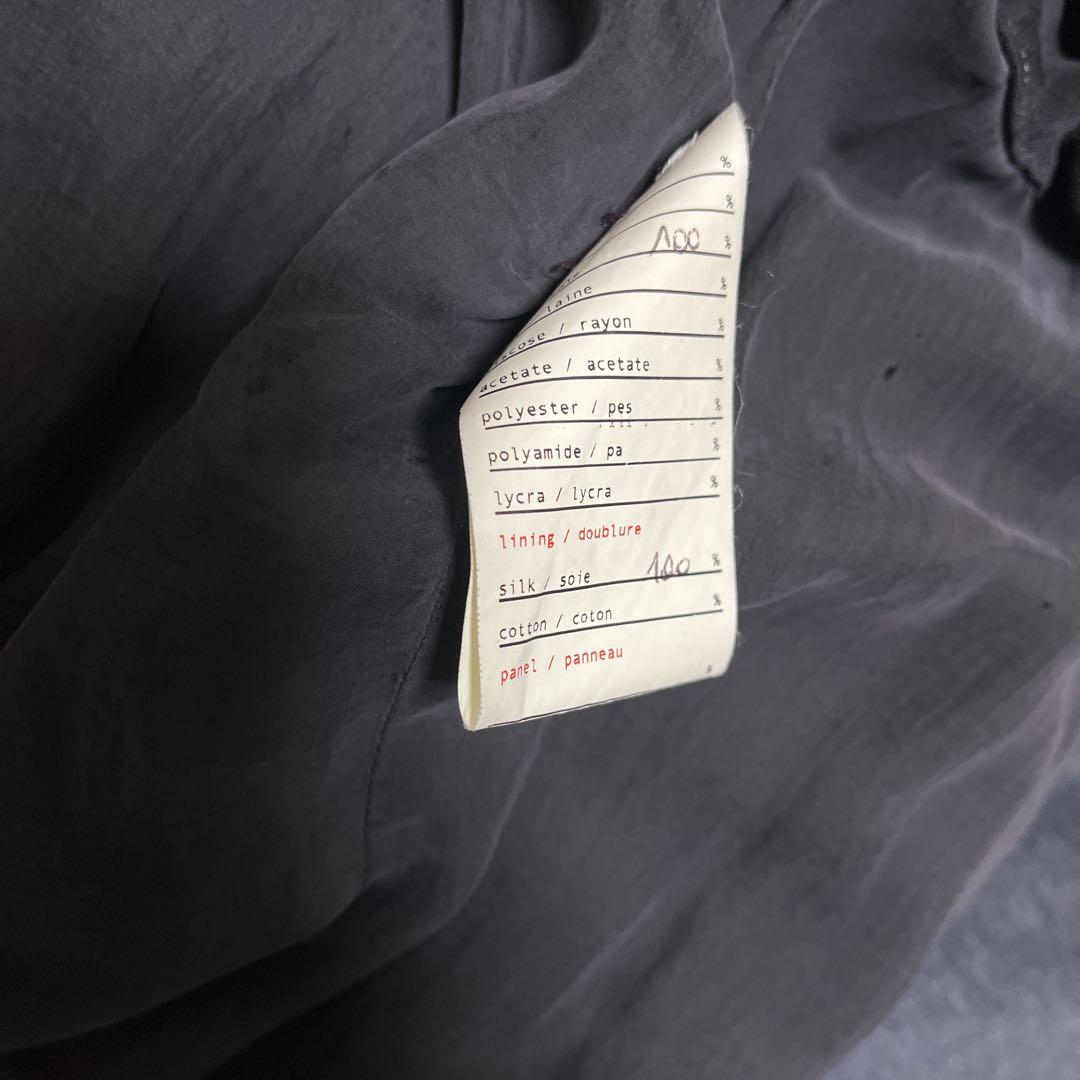 %
%
100 %
laine %
/ rayon %
acetate / acetate %
polyester / pes %
polyamide / pa %
lycra / lycra %
lining / doublure
silk / soie 100 %
cotton / coton %
panel / panneau